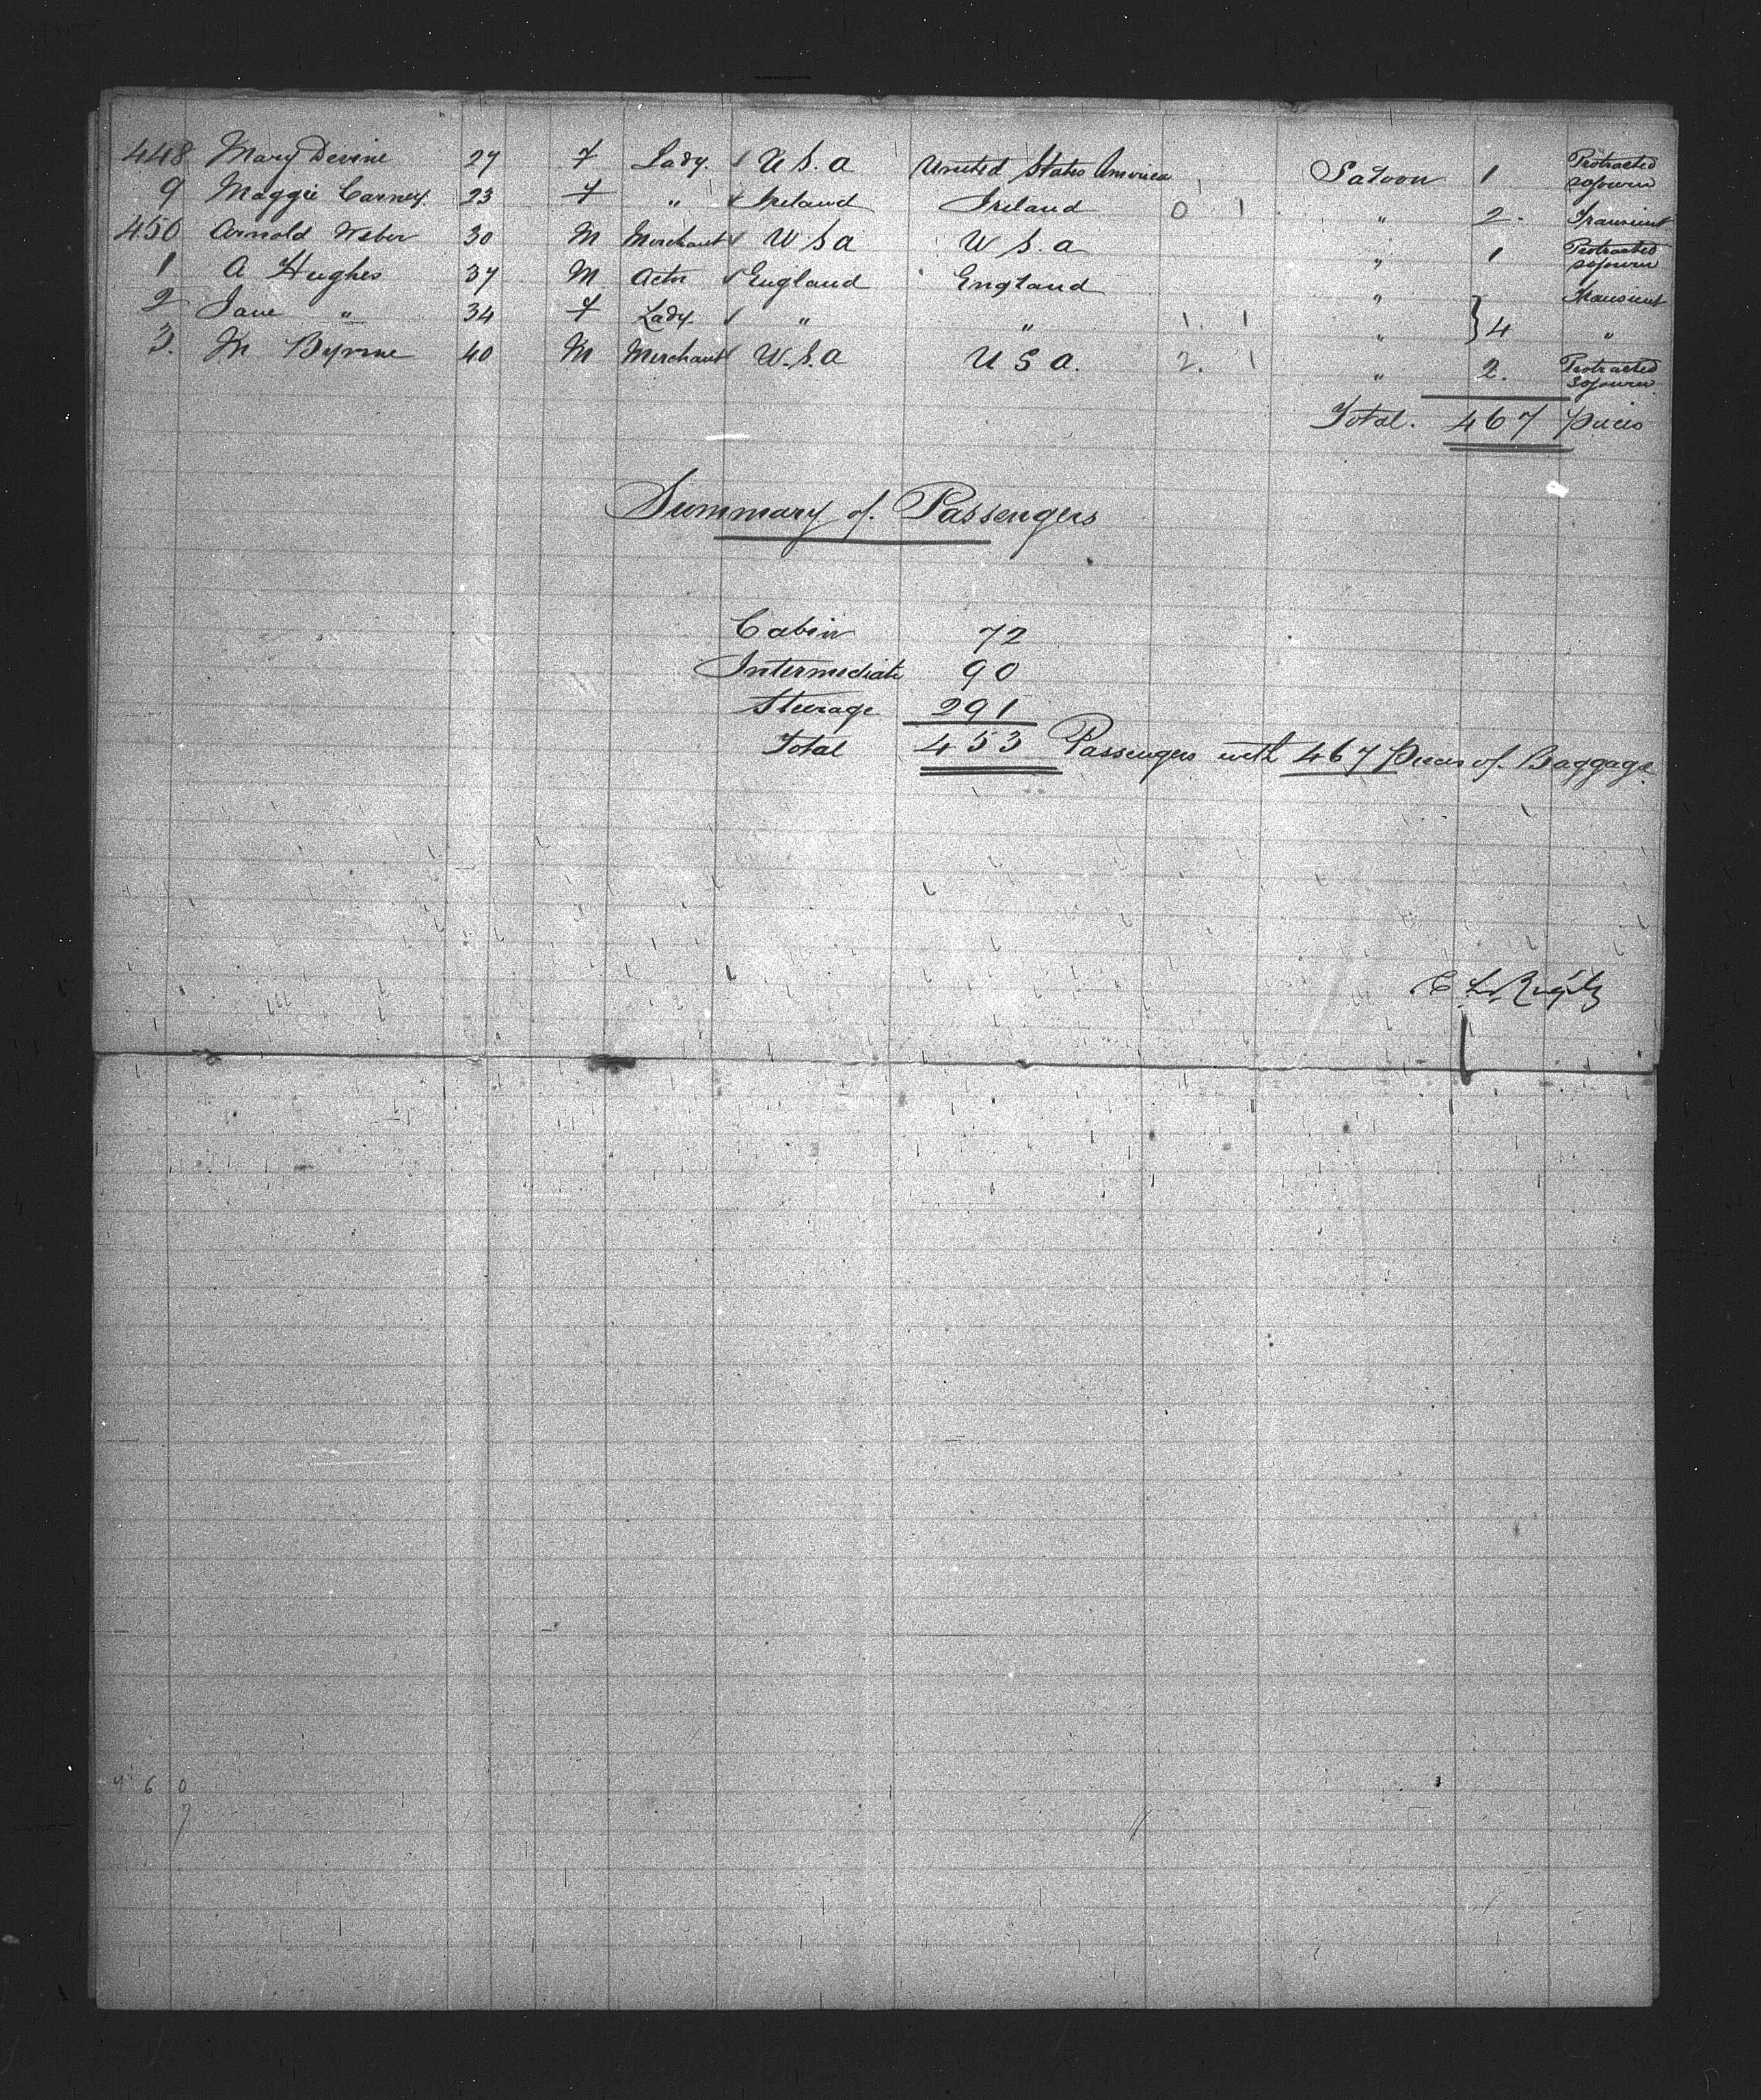 448 Mary Devine 27 F Lady. U S. a United States America Saloon 1 Protracted sojourn
9 Maggie Carney. 23 F " Ireland Ireland 0 1 " 2. Transient
450 Arnold Weber 30 M Merchant U S a U S. a " 1 Protracted sojourn
1 A Hughes 37 M Actor England England " Transient
2 Jane " 34 F Lady. " " 1. 1 " } 4 "
3. M Byrne 40 M Merchant U. S. a U S a. 2. 1 " 2. Protracted sojourn
Total. 467 Pieces
Summary of Passengers
Cabin 72
Intermediate 90
Steerage 291
Total 453 Passengers with 467 Pieces of Baggage.
4 6 0
7